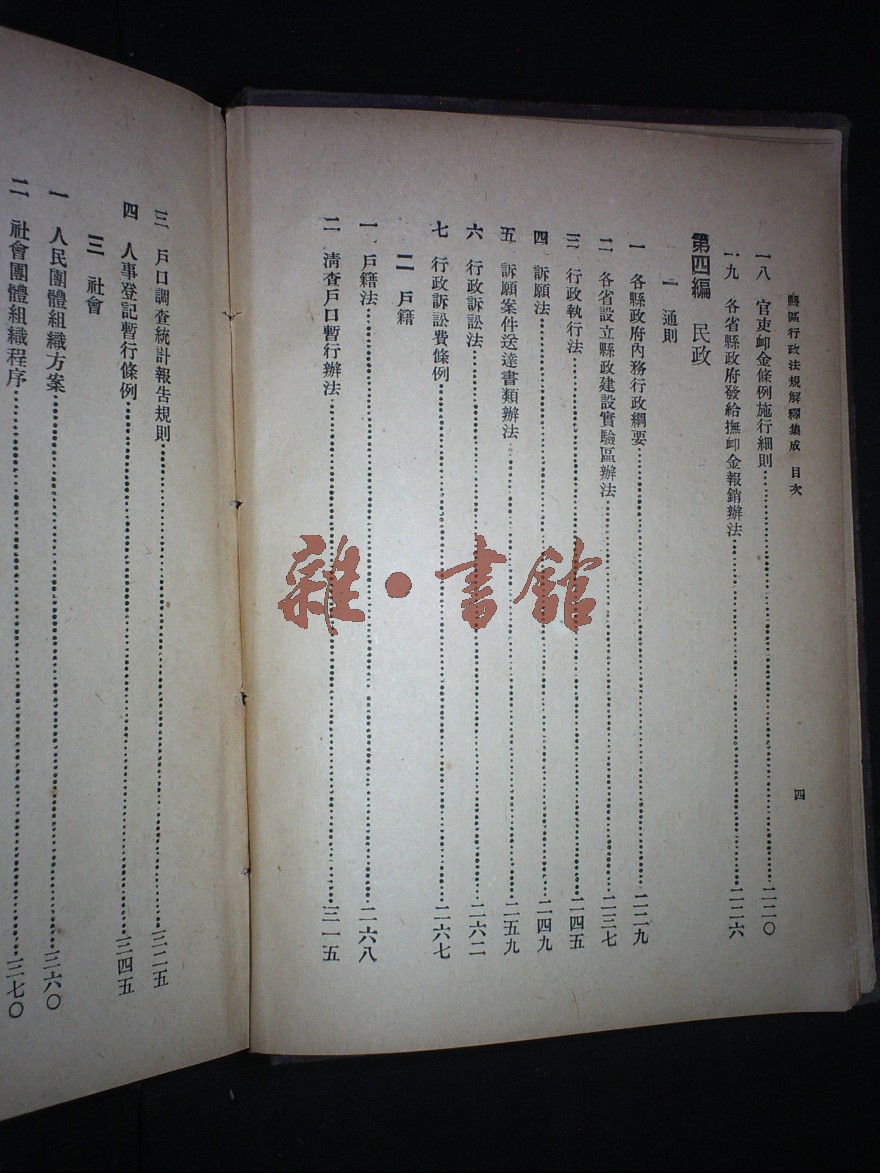 縣區行政法規解釋集成 目次
四
一八 官吏卹金條例施行細則 二二〇
一九 各省縣政府發給撫卹金報銷辦法 二二六
第四編 民政
一 通則
一 各縣政府內務行政綱要 二二九
二 各省設立縣政建設實驗區辦法 二三七
三 行政執行法 二四五
四 訴願法 二四九
五 訴願案件送達書類辦法 二五九
六 行政訴訟法 二六二
七 行政訴訟費條例 二六七
二 戶籍
一 戶籍法 二六八
二 清查戶口暫行辦法 三一五
三 戶口調查統計報告規則 三二五
四 人事登記暫行條例 三四五
三 社會
一 人民團體組織方案 三六〇
二 社會團體組織程序 三七〇
雜·書館